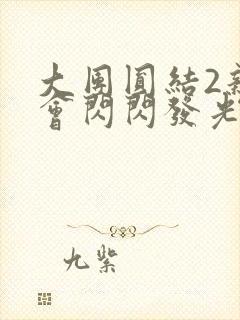 大團圓結2新
會閃閃發光
九紫